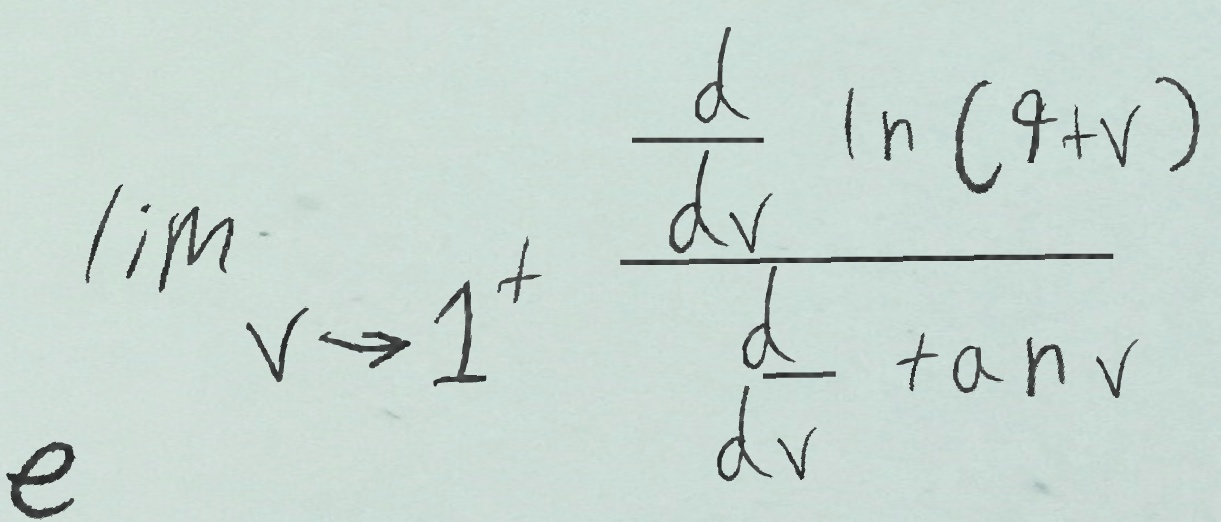 e^{\lim_{v \to 1^+} \frac{\frac{d}{dv} \ln(9+v)}{\frac{d}{dv} \tan v}}